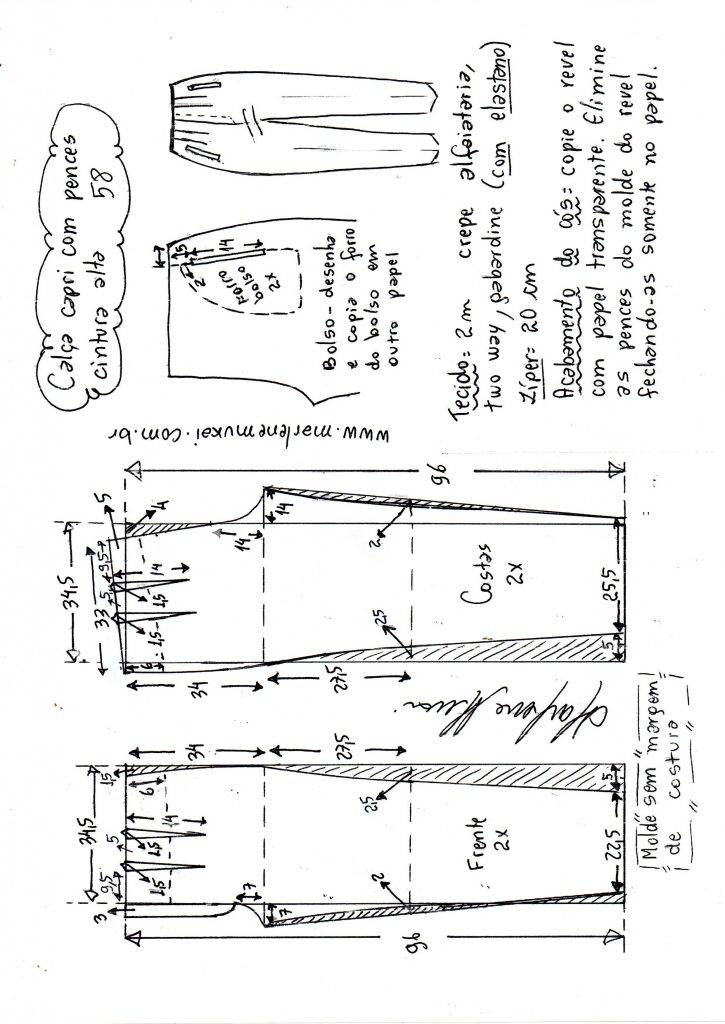 Calça capri com pences
cintura alta 58
7
1,5
14
2
Forro
bolso
2x
Bolso - desenha
e copia o forro
do bolso em
outro papel
Tecido = 2 m crepe alfaiataria,
two way, gabardine (com elastano)
Zíper = 20 cm
Acabamento do cós = copie o revel
com papel transparente. Elimine
as pences do molde do revel
fechando-as somente no papel.
www.marlenemukai.com.br
96
34,5
33
5
4
9,5
5
14
1,5
1,5
6
14
14
34
27,5
2
2,5
Costas
2x
25,5
5
34
27,5
34,5
1,5
6
14
5
1,5
1,5
9,5
3
7
7
2,5
2
Frente
2x
22,5
5
96
Molde sem margem
de costura